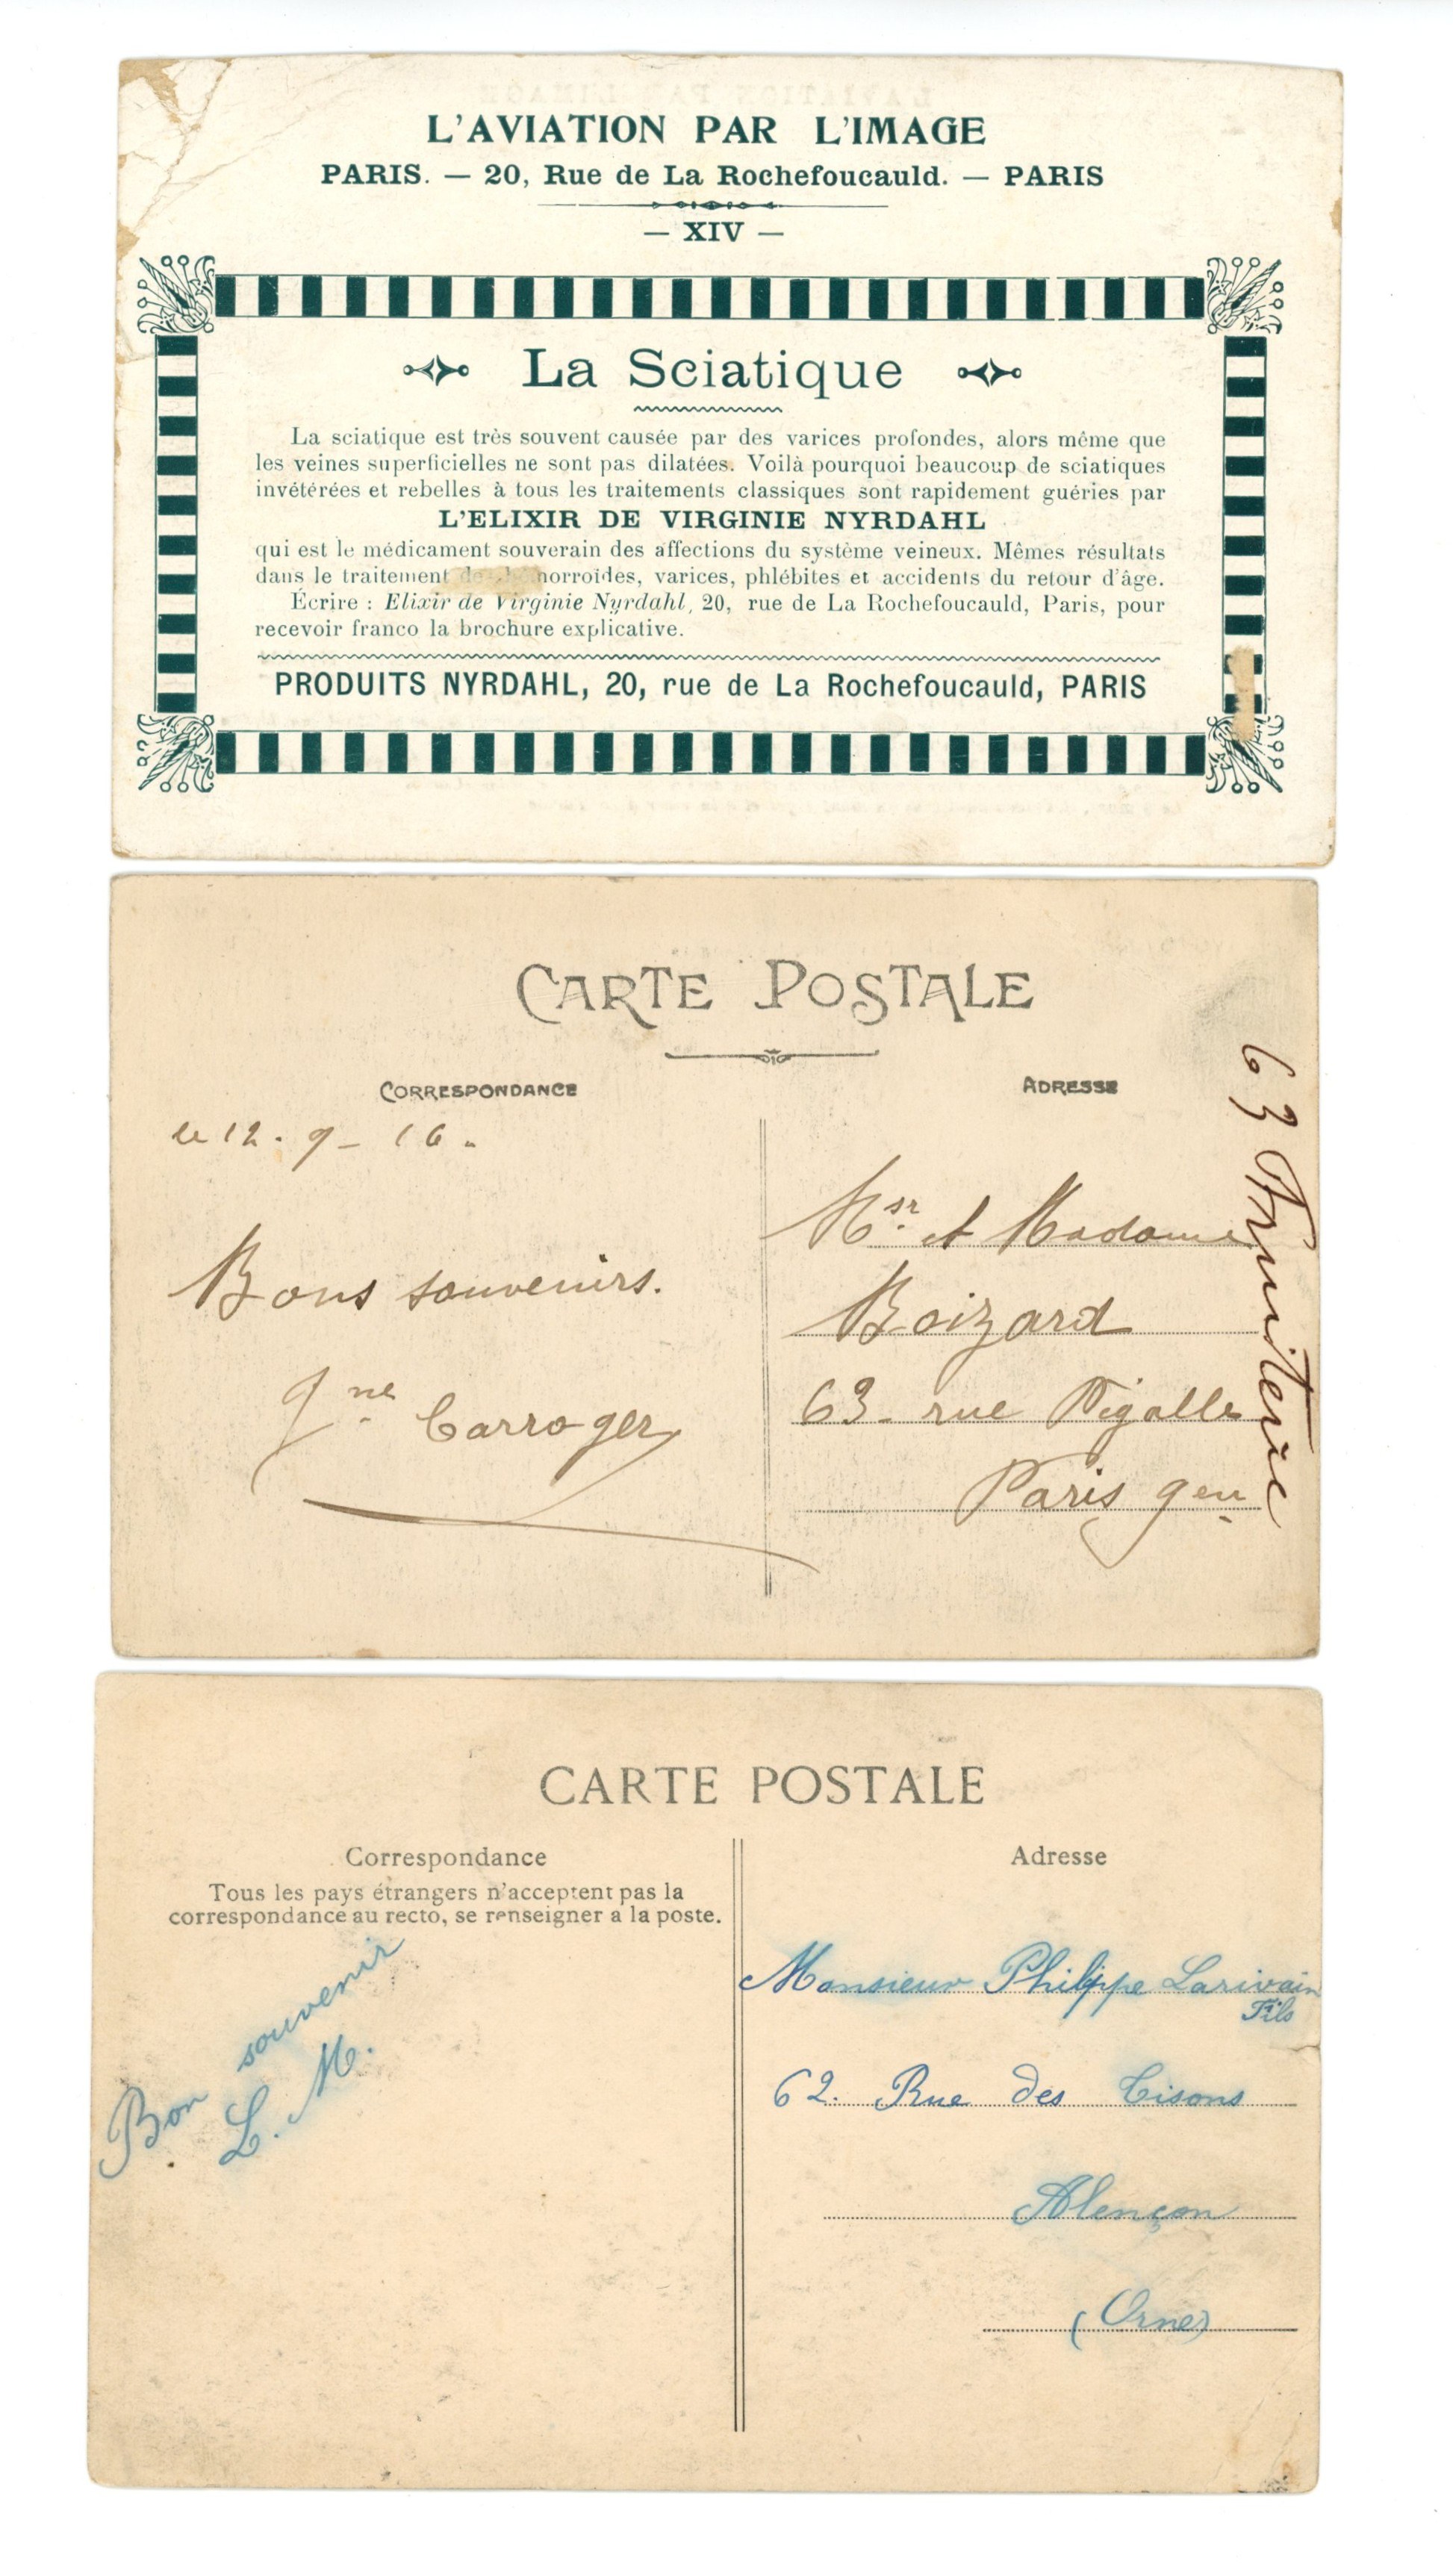 L'AVIATION PAR L'IMAGE
PARIS. — 20, Rue de La Rochefoucauld. — PARIS
— XIV —
La Sciatique
La sciatique est très souvent causée par des varices profondes, alors même que
les veines superficielles ne sont pas dilatées. Voilà pourquoi beaucoup de sciatiques
invétérées et rebelles à tous les traitements classiques sont rapidement guéries par
L'ELIXIR DE VIRGINIE NYRDAHL
qui est le médicament souverain des affections du système veineux. Mêmes résultats
dans le traitement norroïdes, varices, phlébites et accidents du retour d'âge.
Écrire : Elixir de Virginie Nyrdahl, 20, rue de La Rochefoucauld, Paris, pour
recevoir franco la brochure explicative.
PRODUITS NYRDAHL, 20, rue de La Rochefoucauld, PARIS
CARTE POSTALE
CORRESPONDANCE
ADRESSE
le 12 . 9 - 16 .
Bons souvenirs.
Carroger
Msr. et Madame
Boizard
63 - rue Pigalle
Paris 9eu
63 Fruiterie
CARTE POSTALE
Correspondance
Tous les pays étrangers n'acceptent pas la
correspondance au recto, se renseigner a la poste.
Bon souvenir
L. M.
Adresse
Monsieur Philippe Larivain
Fils
62. Rue des Tisons
Alençon
(Orne)